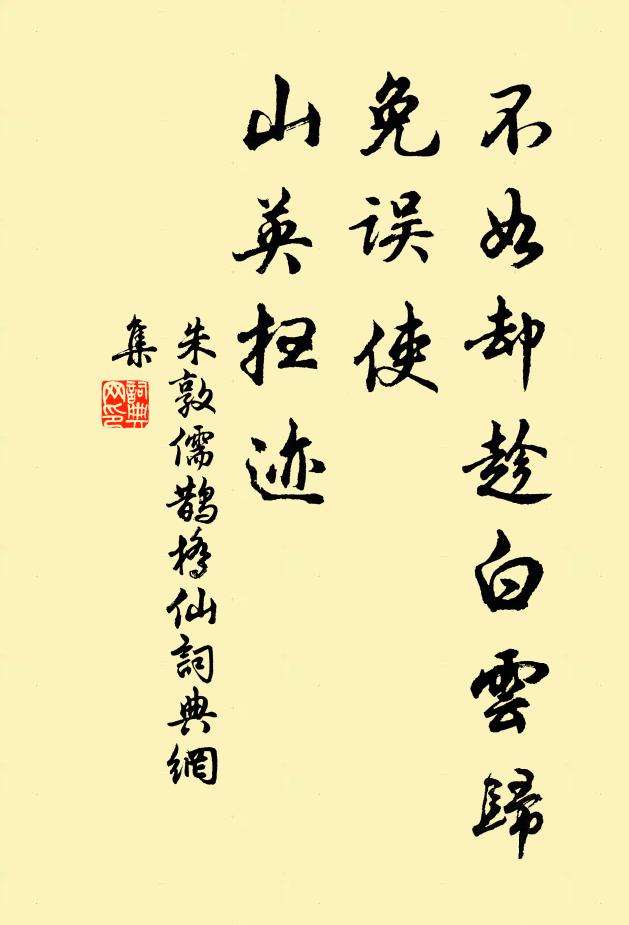 不如却趁白雲歸
免误使
山英扫迹
朱敦儒鹊橋仙詞典網
集
詞典网印